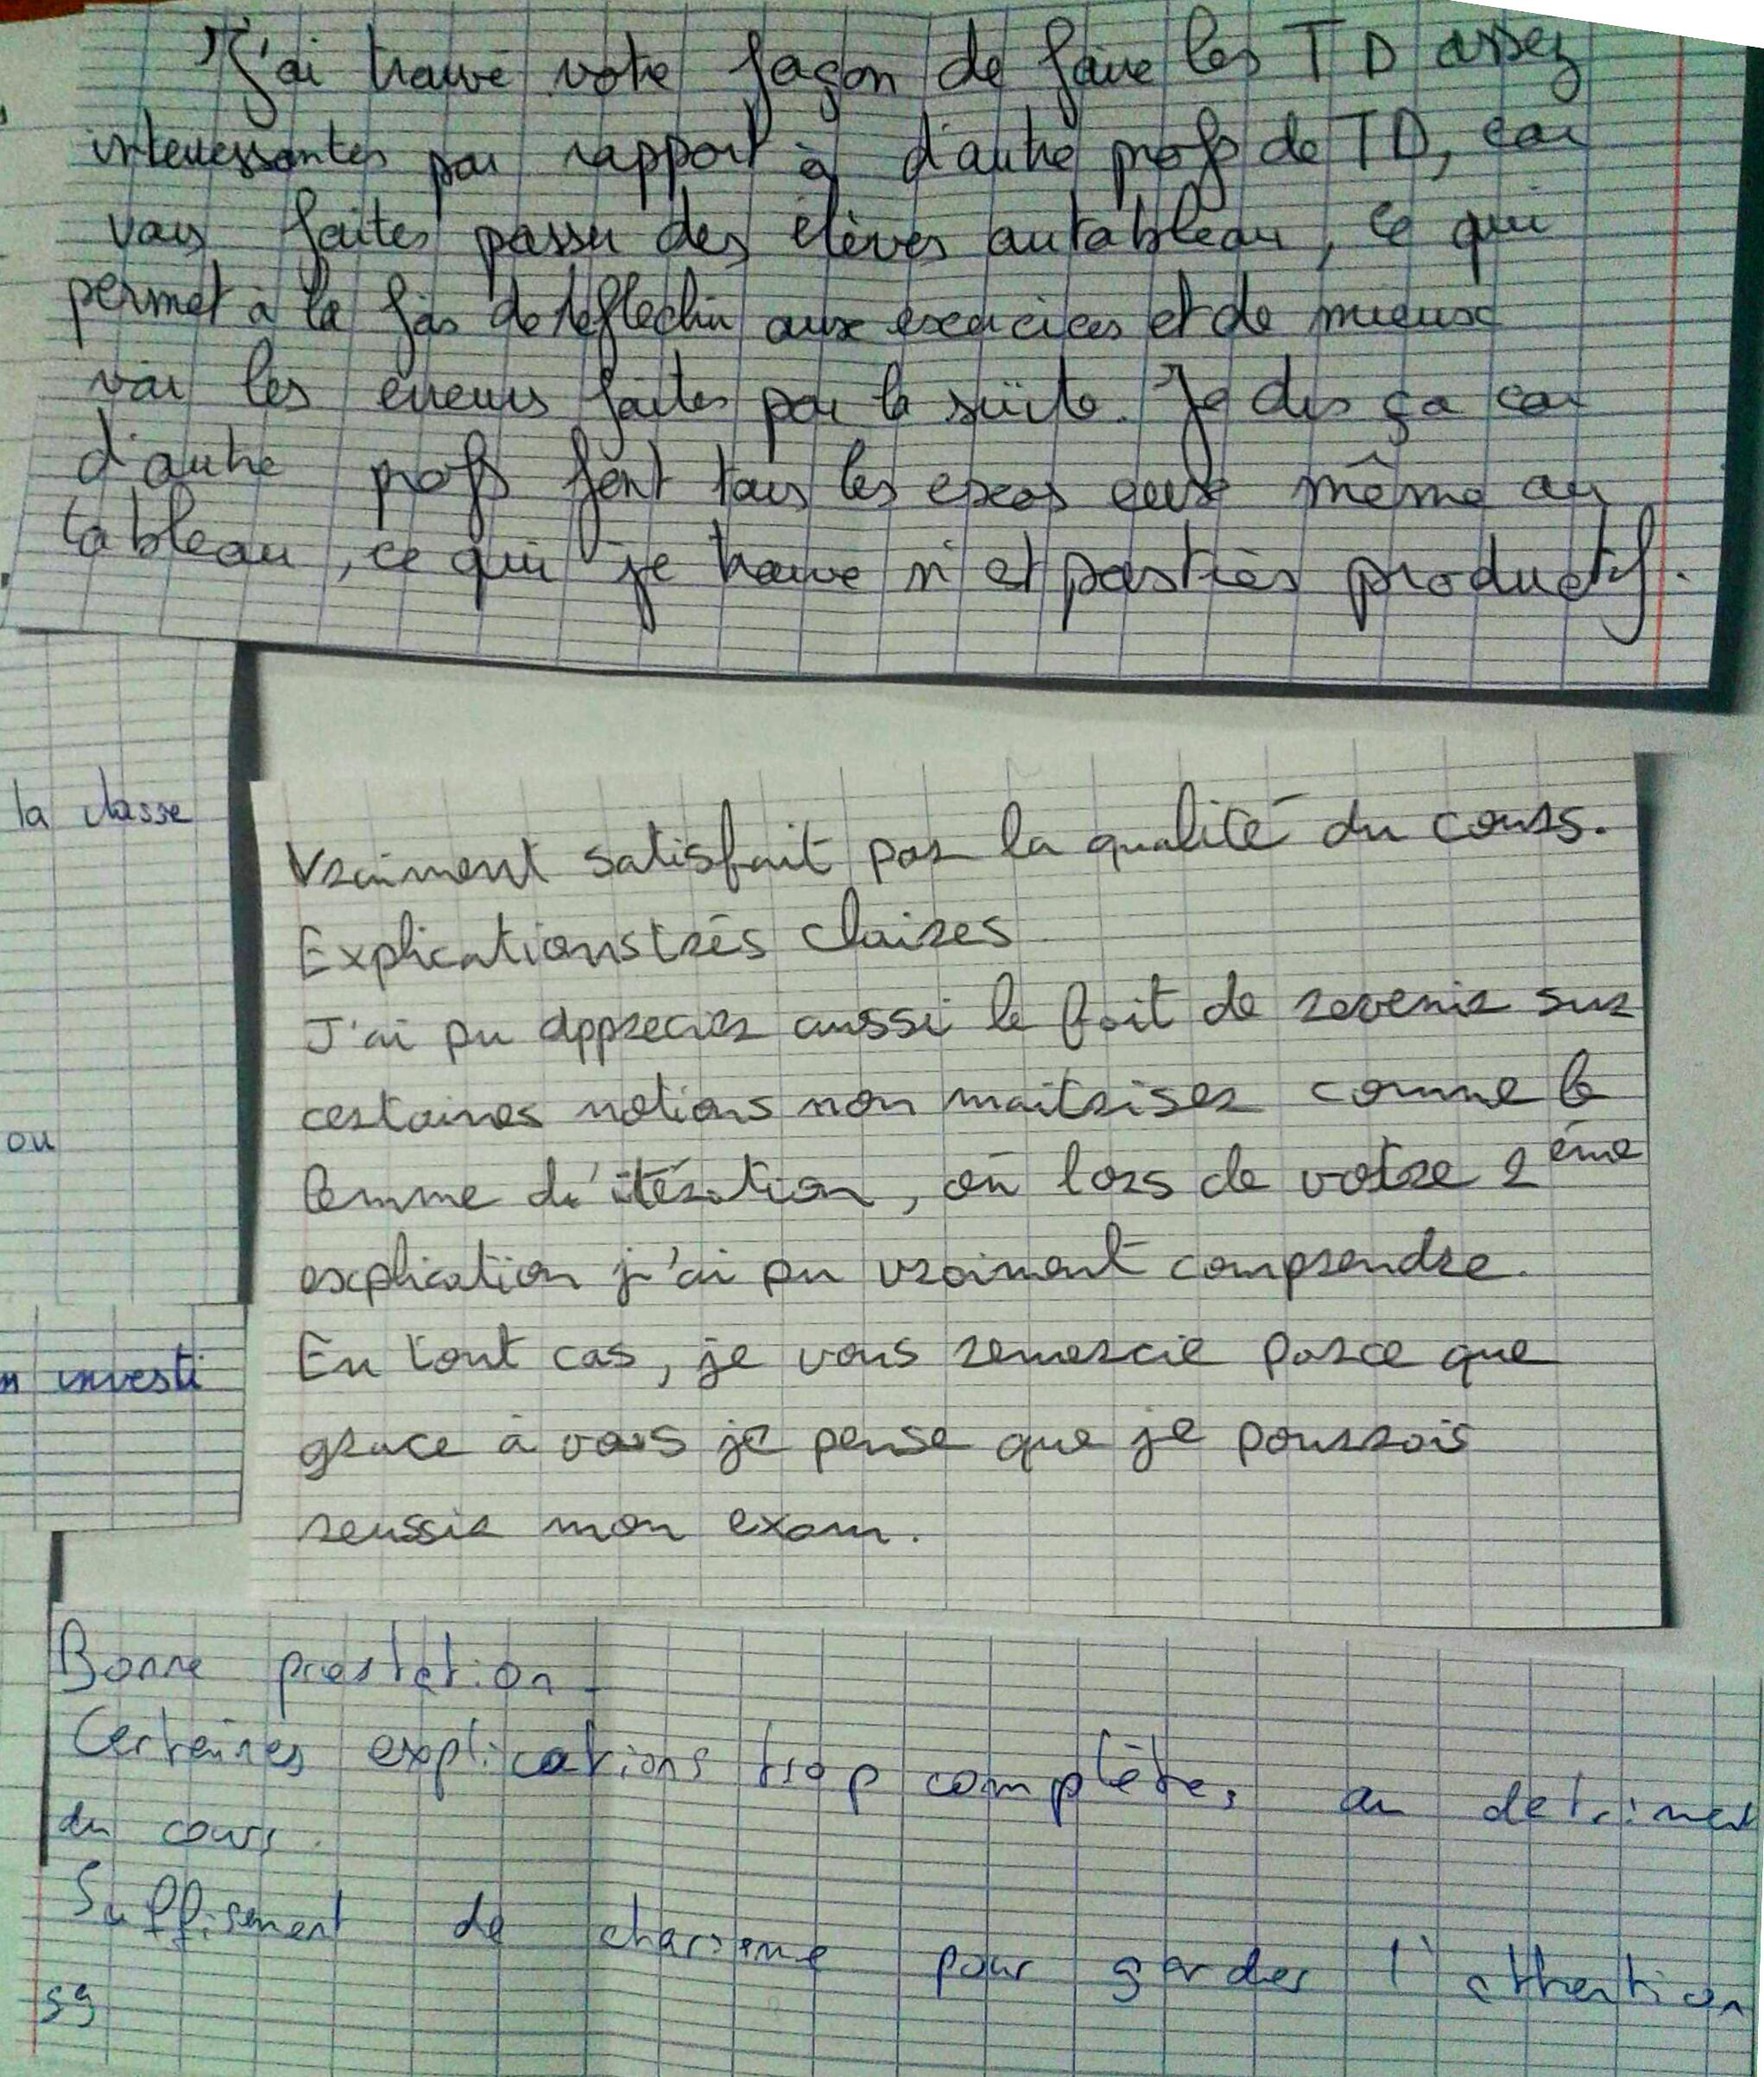 J'ai trouvé votre façon de faire les TD assez
interressantes par rapport à d'autre profs de TD, car
vous faites passer des élèves au tableau, ce qui
permet à la fois de réflechir aux exercices et de mieux
voir les erreurs faites par la suite. Je dis ça car
d'autre profs font tous les exos eux même au
tableau, ce qui je trouve n'et pas très productif.
la classe
Vraiment satisfait par la qualité du cours.
Explications très claires
J'ai pu apprecier aussi le fait de revenir sur
certaines notions non maitriser comme le
ou
lemme d'itération, où lors de votre 2ème
explication j'ai pu vraiment comprendre.
n investi
En tout cas, je vous remercie parce que
grace à vous je pense que je pourrais
reussir mon exam.
Bonne prestation
Certaines explications trop complètes, au detriment
du cours.
Suffisement de charisme pour garder l'attention